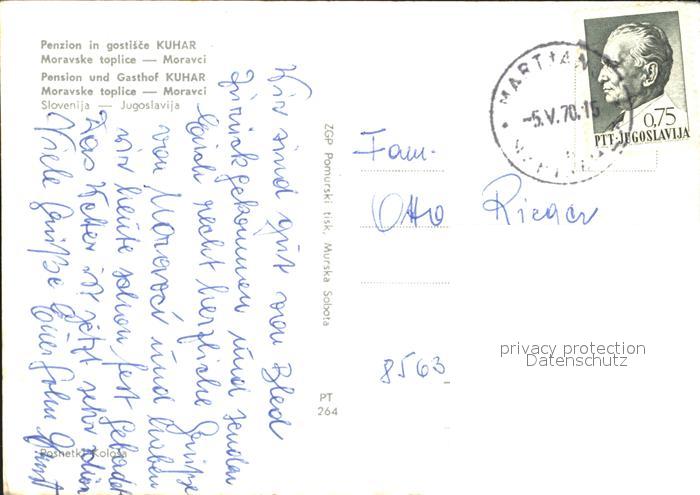 Penzion in gostišče KUHAR
Moravske toplice — Moravci
Pension und Gasthof KUHAR
Moravske toplice — Moravci
Slovenija — Jugoslavija
Wir sind gut von Bled
zurückgekommen und senden
Euch recht herzliche Grüße
von Moravci und haben
wir heute schon fest gebadet
Das Wetter ist jetzt sehr schön
Viele Grüße Euer John
Posnetki Kološa
ZGP Pomurski tisk, Murska Sobota
PT
264
MARTJAN
-5.V.70.16
0,75
PTT-JUGOSLAVIJA
Fam.
Otto Rieger
8563
privacy protection
Datenschutz